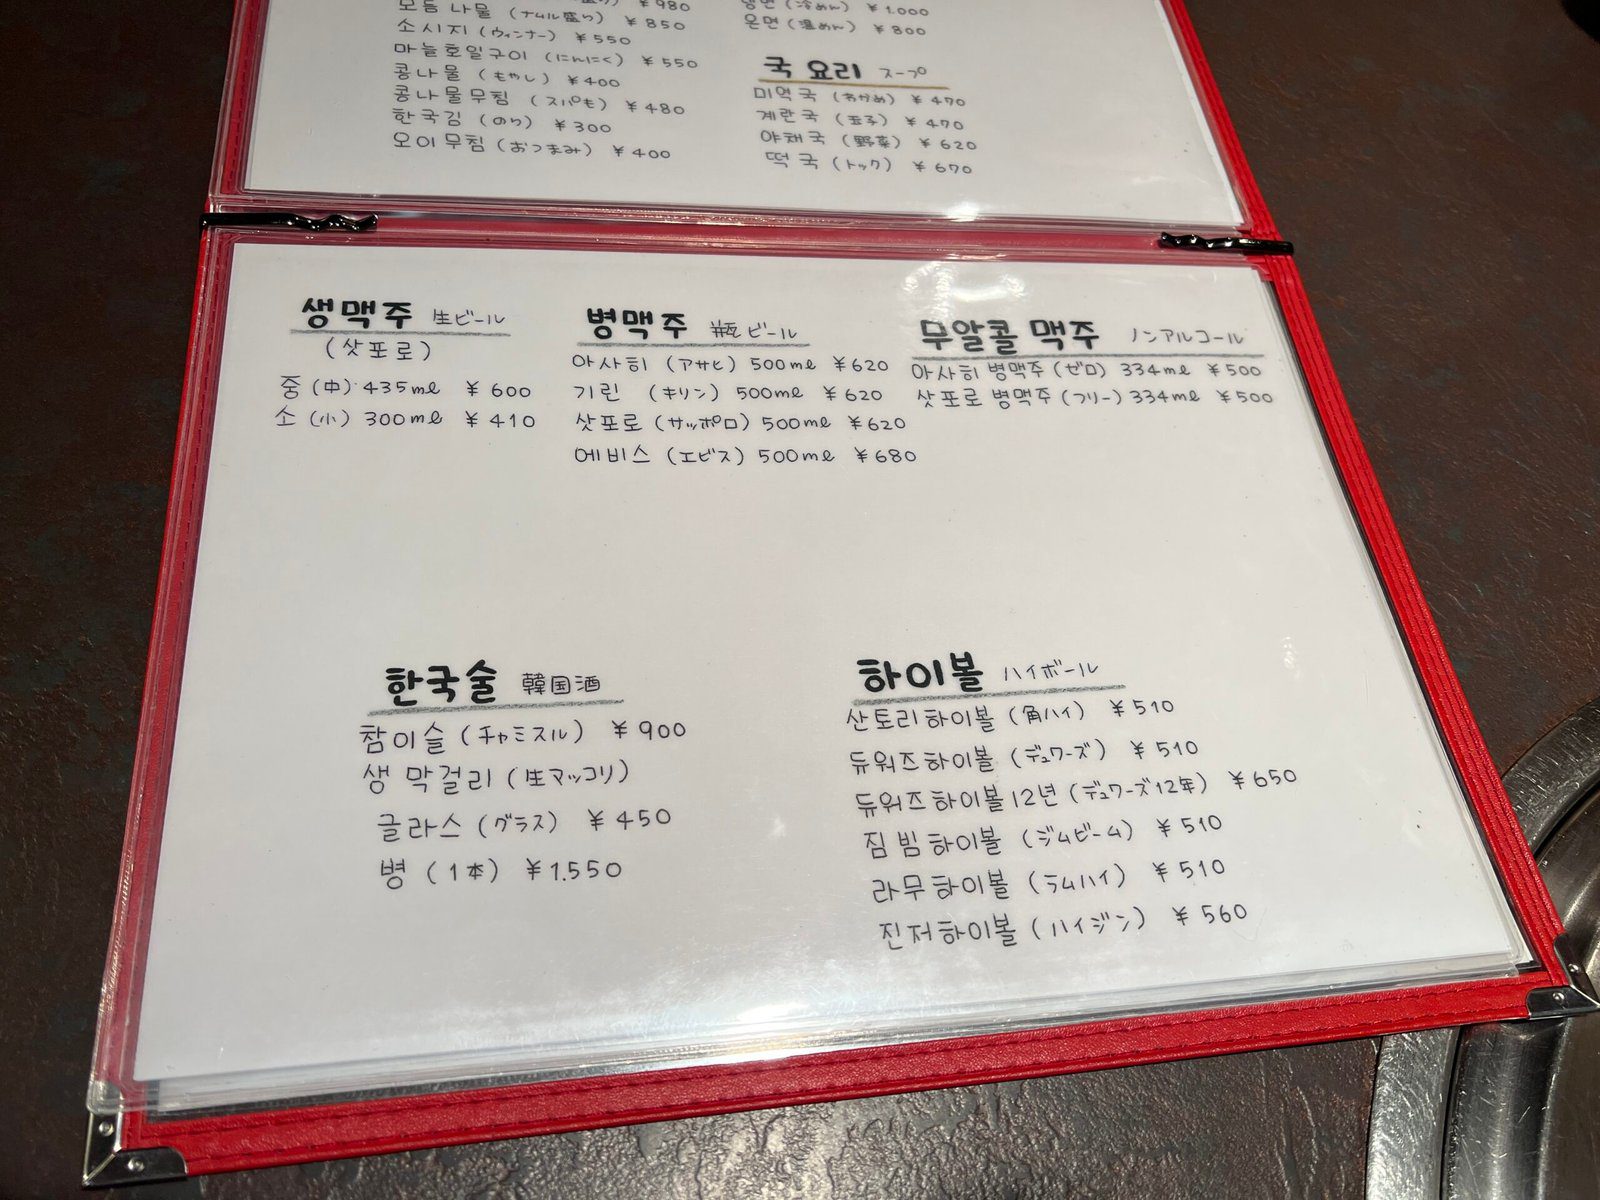 ¥980
모듬 나물 (ナムル盛り) ¥850
소시지 (ウィンナー) ¥550
마늘호일구이 (にんにく) ¥550
콩나물 (もやし) ¥400
콩나물무침 (スパも) ¥480
한국김 (のり) ¥300
오이무침 (おつまみ) ¥400
냉면 (冷めん) ¥1.000
온면 (温めん) ¥800
국 요리 スープ
미역국 (わかめ) ¥470
계란국 (玉子) ¥470
야채국 (野菜) ¥620
떡국 (トック) ¥670
생맥주 生ビール
(삿포로)
중 (中) 435ml ¥600
소 (小) 300ml ¥410
병맥주 瓶ビール
아사히 (アサヒ) 500ml ¥620
기린 (キリン) 500ml ¥620
삿포로 (サッポロ) 500ml ¥620
에비스 (エビス) 500ml ¥680
무알콜 맥주 ノンアルコール
아사히 병맥주 (ゼロ) 334ml ¥500
삿포로 병맥주 (フリー) 334ml ¥500
한국술 韓国酒
참이슬 (チャミスル) ¥900
생 막걸리 (生マッコリ)
글라스 (グラス) ¥450
병 (1本) ¥1.550
하이볼 ハイボール
산토리하이볼 (角ハイ) ¥510
듀워즈하이볼 (デュワーズ) ¥510
듀워즈하이볼 12년 (デュワーズ12年) ¥650
짐빔하이볼 (ジムビーム) ¥510
라무하이볼 (ラムハイ) ¥510
진저하이볼 (ハイジン) ¥560